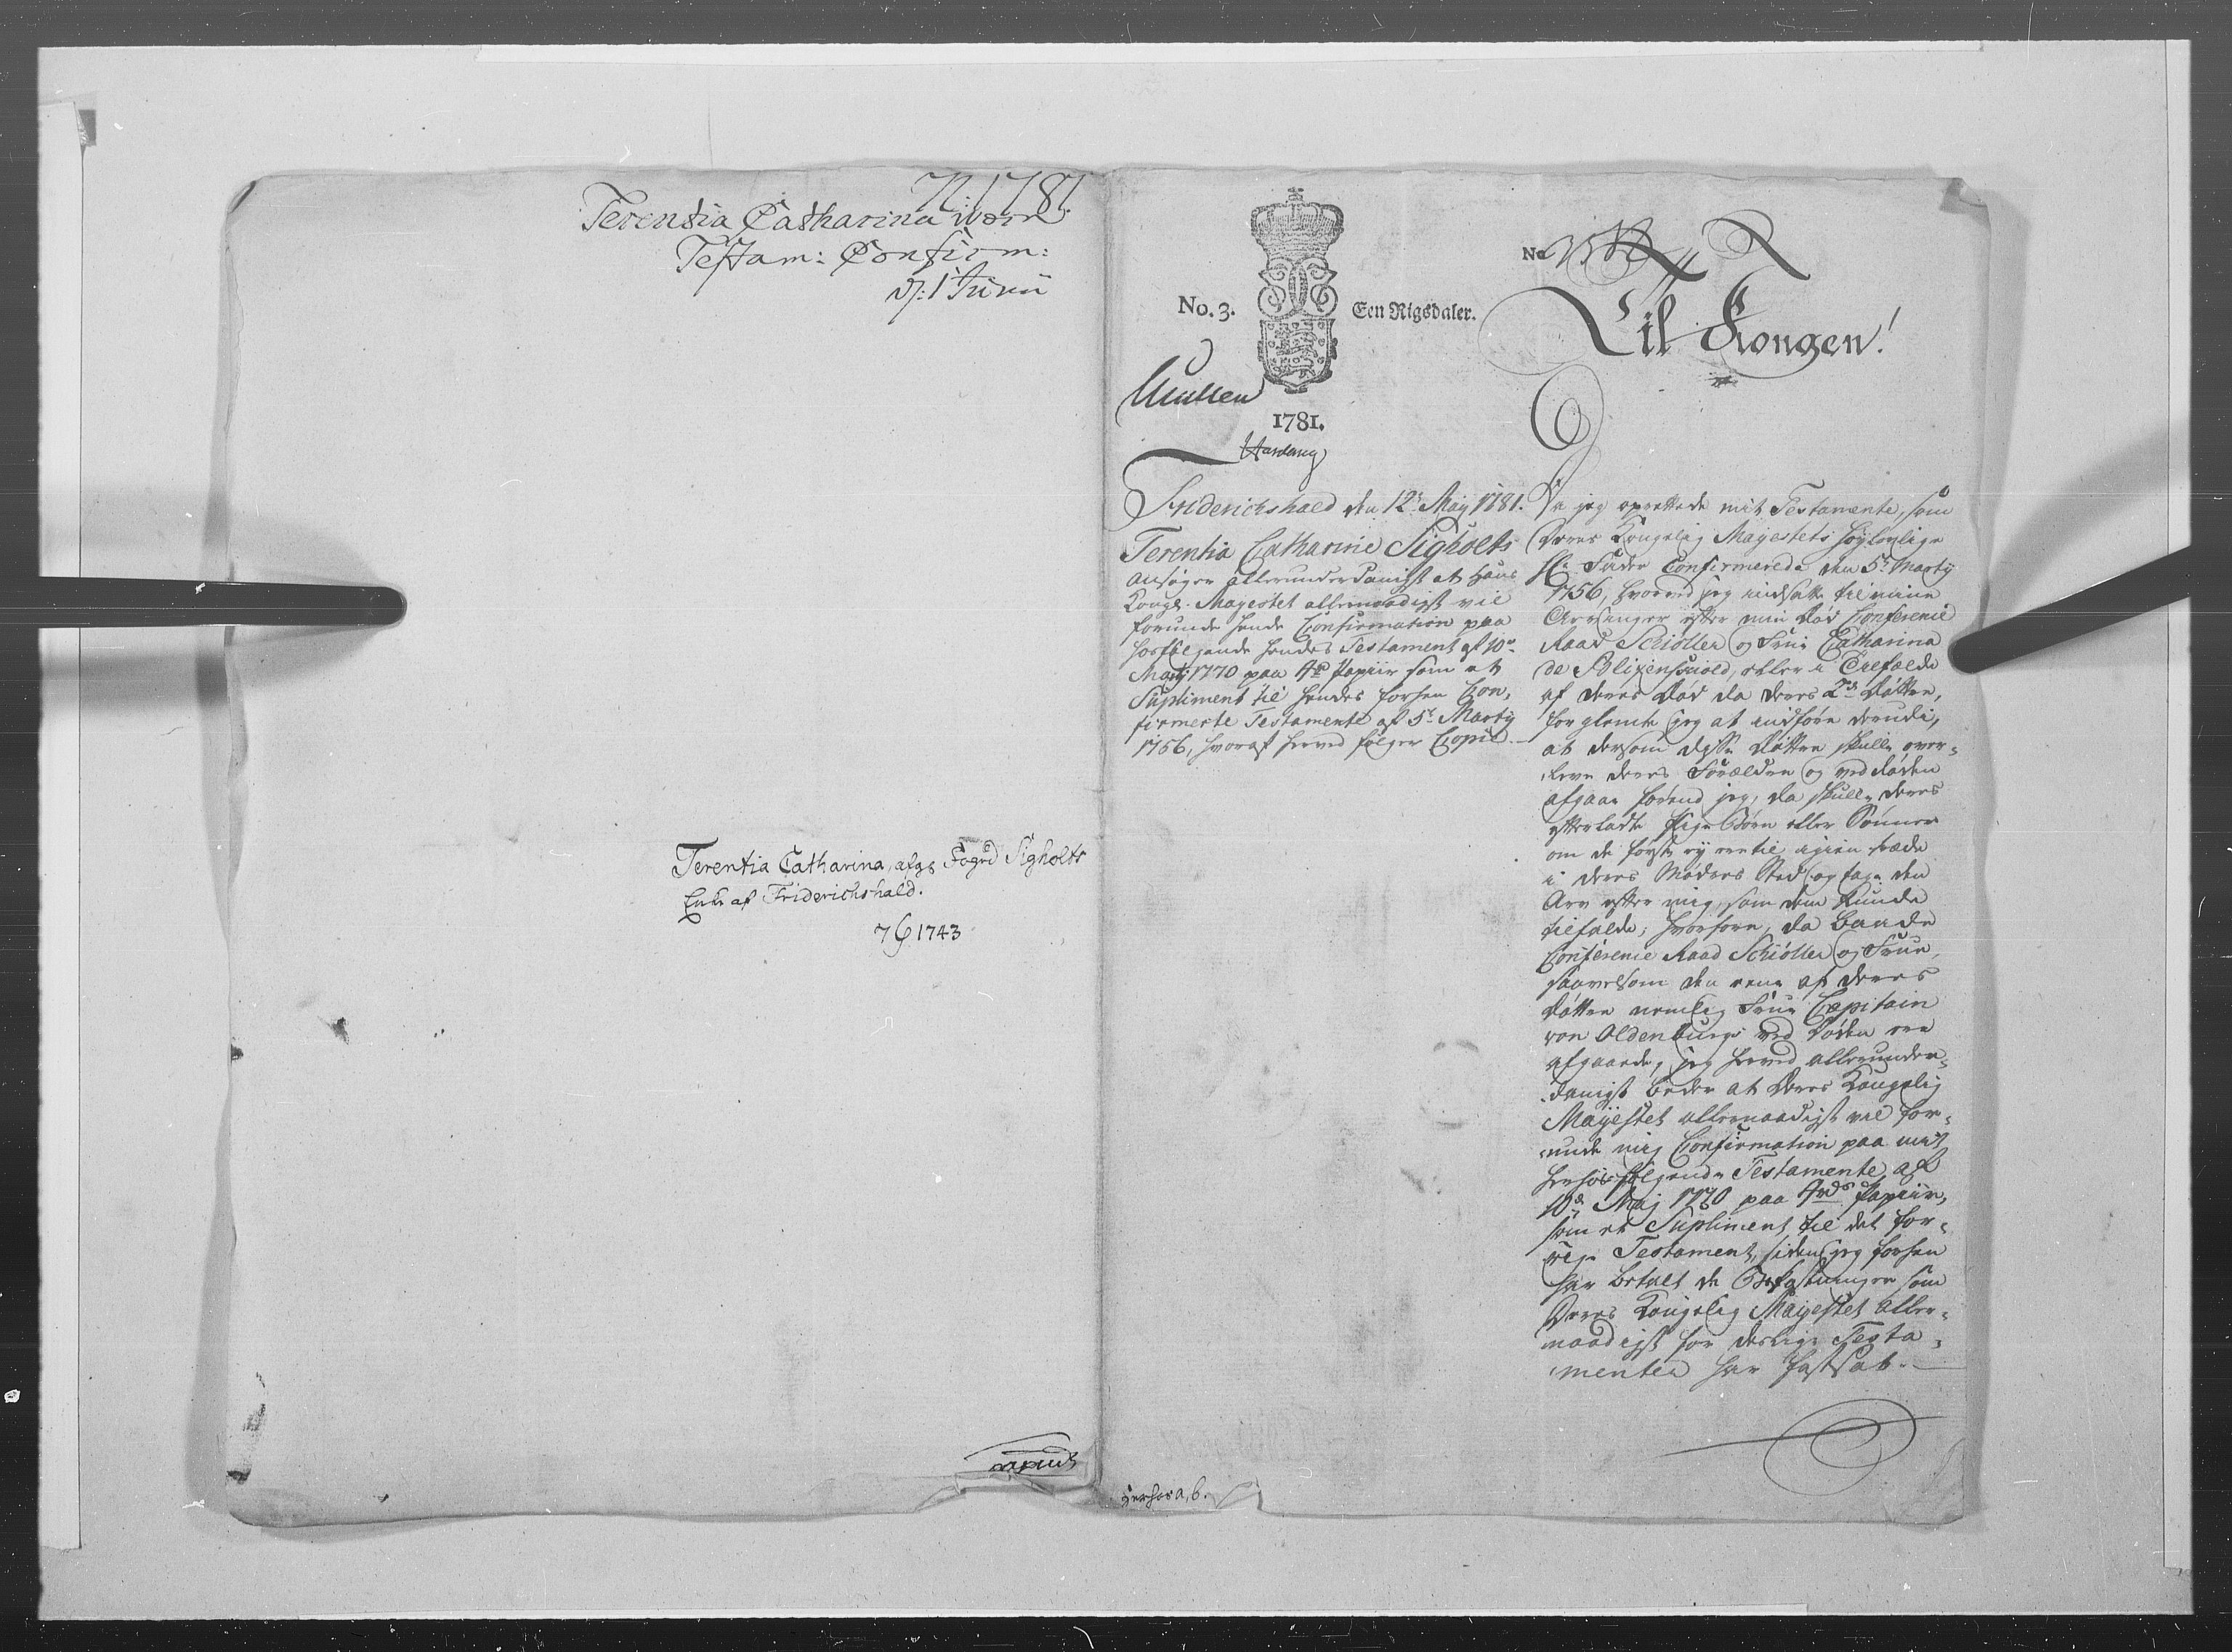 72. 1781
Terentia Catharina
Testam: Confirm:
d: 1 Junii
Terentia Catharina, afgs Foged Sigholts
Enke af Friderichshald.
1743
No. 3.
Een Rigsdaler.
1781.
Friderichshald den 12t May 1781.
Terentia Catharine Sigholts
ansøger allerunderdanigst at Hans
Kongl. Mayestet allernaadigst vil
forunde hende Confirmation paa
hosfølgende hendes Testament af 10de
May 1770 paa Papiir som et
Supliment til hendes forhen Con,
firmerte Testamente af 5t Marty
1756, hvoraf herved følger Copie.
No
Til Kongen!
Da jeg oprettede mit Testamente, som
Deres Kongelig Mayestets Høylovlige
Hr. Fader Confirmerede den 5t Marty
1756, hvorved jeg indsatte til mine
Arvinger efter min Død Conferenie
Raad Schiøller og Frue Catharina
de Blixenschiold, eller i Tilfælde
af deres Død da deres 2de Døttre,
forglemte jeg at indføre derudi,
at dersom disse Døttre skulle over-
leve deres Forældre og ved døden
afgaae forend jeg, da skulle deres
efterladte Pige Børn eller Sønner
om de første ey ere til igien træde
i deres Moders Sted og tage den
Arv efter mig, som dem kunde
tilfalde; hvorfore, da baade
Conferenie Raad Schiøller og Frue,
saavelsom den eene af deres
Døttre nemlig Frue Capitain
von Oldenburg ved Døden ere
afgaaede, jeg herved allerunder-
danigst beder at Deres Kongelig
Mayestet allernaadigst vil for-
unde mig Confirmation paa mit
herhosfølgende Testamente af
10de Maj 1770 paa Papiir,
som et Supliment til det for-
rige Testament, siden jeg forhen
har betalt de Bekostninger som
Deres Kongelig Mayestet aller-
naadigst for deslige Testa-
menter har fastsat.
Herhos a, b.